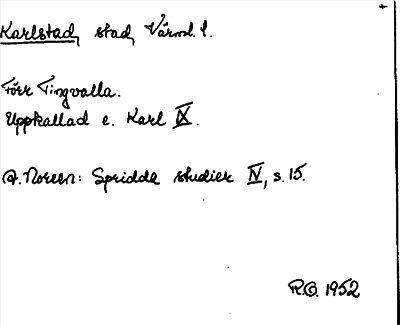 Karlstad, stad, Värml. l.
Förr Tingvalla.
Uppkallad e. Karl IX.
A. Noreen: Spridda studier IV, s. 15.
R.O. 1952